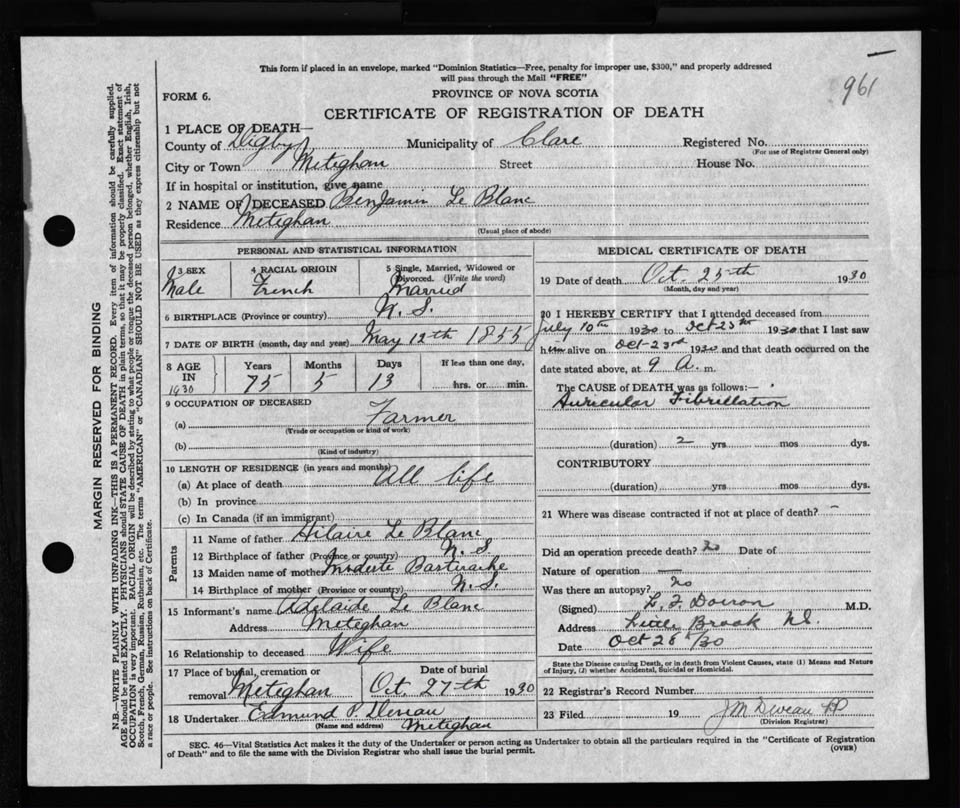 This form if placed in an envelope, marked "Dominion Statistics—Free, penalty for improper use, $300," and properly addressed
will pass through the Mail "FREE"
961
FORM 6.
PROVINCE OF NOVA SCOTIA
CERTIFICATE OF REGISTRATION OF DEATH
1 PLACE OF DEATH—
County of Digby Municipality of Clare Registered No.
(For use of Registrar General only)
City or Town Meteghan Street House No.
If in hospital or institution, give name
2 NAME OF DECEASED Benjamin Le Blanc
Residence Meteghan
(Usual place of abode)
PERSONAL AND STATISTICAL INFORMATION
3 SEX 4 RACIAL ORIGIN 5 Single, Married, Widowed or
Divorced. (Write the word)
Male French Married
6 BIRTHPLACE (Province or country) N. S.
7 DATE OF BIRTH (month, day and year) May 12th 1855
8 AGE IN 1930 Years Months Days If less than one day,
75 5 13 hrs. or min.
9 OCCUPATION OF DECEASED
(a) Farmer
(Trade or occupation or kind of work)
(b)
(Kind of industry)
10 LENGTH OF RESIDENCE (in years and months)
(a) At place of death All life
(b) In province
(c) In Canada (if an immigrant)
Parents
11 Name of father Hilaire Le Blanc
12 Birthplace of father (Province or country) N. S.
13 Maiden name of mother Modeste
14 Birthplace of mother (Province or country) N. S.
15 Informant's name Adelaide Le Blanc
Address Meteghan
16 Relationship to deceased Wife
17 Place of burial, cremation or Date of burial
removal Meteghan Oct. 27th 1930
18 Undertaker Edmund P.
(Name and address) Meteghan
MEDICAL CERTIFICATE OF DEATH
19 Date of death Oct. 25th 1930
(Month, day and year)
20 I HEREBY CERTIFY that I attended deceased from
July 10th 1930 to Oct-23rd 1930 that I last saw
him alive on Oct-23rd 1930 and that death occurred on the
date stated above, at 9 A. m.
The CAUSE OF DEATH was as follows:—
Auricular Fibrillation
(duration) 2 yrs mos dys.
CONTRIBUTORY
(duration) yrs mos dys.
21 Where was disease contracted if not at place of death? -
Did an operation precede death? No Date of
Nature of operation —
Was there an autopsy? No
(Signed) L. F. Doiron M.D.
Address Little Brook N.S.
Date Oct 26th/30
State the Disease causing Death, or in death from Violent Causes, state (1) Means and Nature
of Injury, (2) whether Accidental, Suicidal or Homicidal.
22 Registrar's Record Number
23 Filed 19 J M Deveau
(Division Registrar)
SEC. 46—Vital Statistics Act makes it the duty of the Undertaker or person acting as Undertaker to obtain all the particulars required in the "Certificate of Registration
of Death" and to file the same with the Division Registrar who shall issue the burial permit.
(OVER)
MARGIN RESERVED FOR BINDING
N.B.—WRITE PLAINLY WITH UNFADING INK—THIS IS A PERMANENT RECORD. Every item of information should be carefully supplied.
AGE should be stated EXACTLY. PHYSICIANS should STATE CAUSE OF DEATH in plain terms, so that it may be properly classified. Exact statement of
OCCUPATION is very important. RACIAL ORIGIN will be described by stating to what people or tongue the deceased person belonged, whether English, Irish,
Scotch, French, German, Russian, Ruthenian, etc. The terms "AMERICAN" or "CANADIAN" SHOULD NOT BE USED as they express citizenship but not
a race or people. See instructions on back of Certificate.